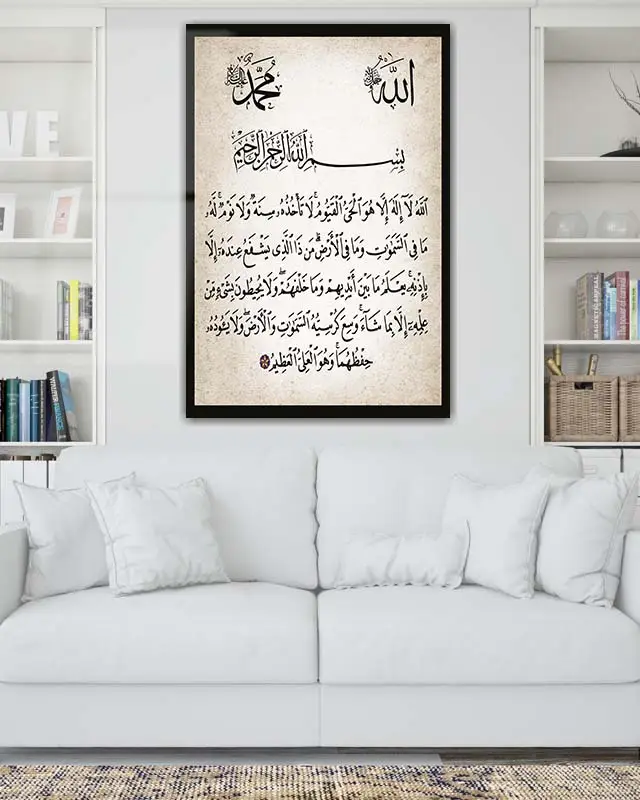 الله جل جلاله محمد
بسم الله الرحمن الرحيم
ٱللَّهُ لَآ إِلَٰهَ إِلَّا هُوَ ٱلْحَىُّ ٱلْقَيُّومُ ۚ لَا تَأْخُذُهُۥ سِنَةٌ وَلَا نَوْمٌ ۚ لَّهُۥ
مَا فِى ٱلسَّمَٰوَٰتِ وَمَا فِى ٱلْأَرْضِ ۗ مَن ذَا ٱلَّذِى يَشْفَعُ عِندَهُۥٓ إِلَّا
بِإِذْنِهِۦ ۚ يَعْلَمُ مَا بَيْنَ أَيْدِيهِمْ وَمَا خَلْفَهُمْ ۖ وَلَا يُحِيطُونَ بِشَىْءٍ مِّنْ
عِلْمِهِۦٓ إِلَّا بِمَا شَآءَ ۚ وَسِعَ كُرْسِيُّهُ ٱلسَّمَٰوَٰتِ وَٱلْأَرْضَ ۖ وَلَا يَـُٔودُهُۥ
حِفْظُهُمَا ۚ وَهُوَ ٱلْعَلِىُّ ٱلْعَظِيمُ
VE
MAGNETIC
The power of